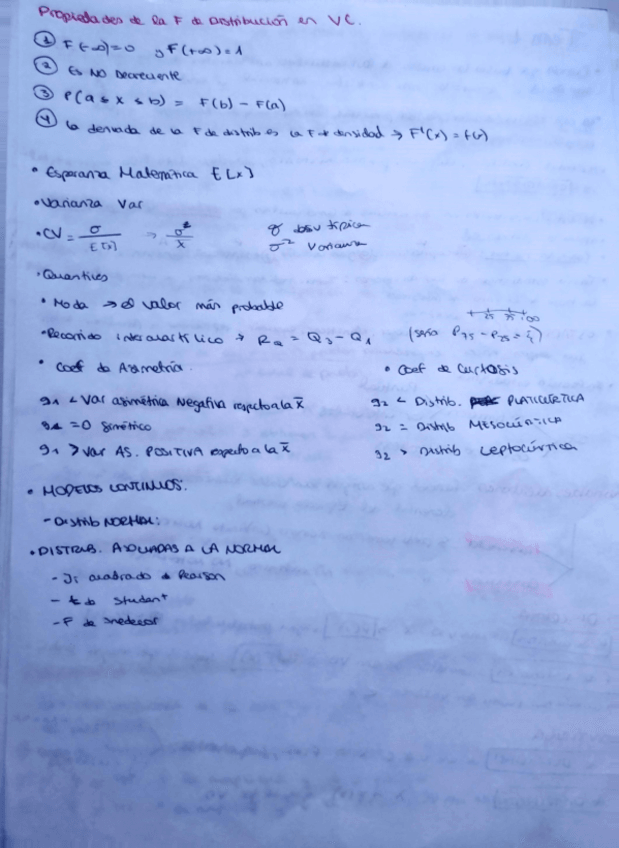 Propiedades de la F de Distribución en VC.
① F(-∞)=0 , F(+∞)=1
② Es NO Decreciente
③ P(a ≤ x ≤ b) = F(b) - F(a)
④ la derivada de la F de distrib es la F densidad → F'(x) = f(x)
• Esperanza Matemática E[x]
• Varianza Var
• CV = σ / E[x] → σ² / x̄   σ desv típica
σ² Varianza
• Quantiles
• Moda → el valor más probable
25 75 100
• Recorrido intercuartílico → RQ = Q3 - Q1 (sería P75 - P25 =
• Coef de Asimetría.   • Coef de Curtosis
g1 < Var asimétria Negativa respecto a la x̄   g2 < Distrib. PLATICÚRTICA
g1 = 0 Simétrico   g2 = Distrib MESOCÚRTICA
g1 > Var AS. POSITIVA respecto a la x̄   g2 > Distrib Leptocúrtica
• MODELOS CONTINUOS:
- Distrib NORMAL:
• DISTRIB. ASOCIADAS A LA NORMAL
- Ji cuadrado de Pearson
- t de Student
- F de Snedecor